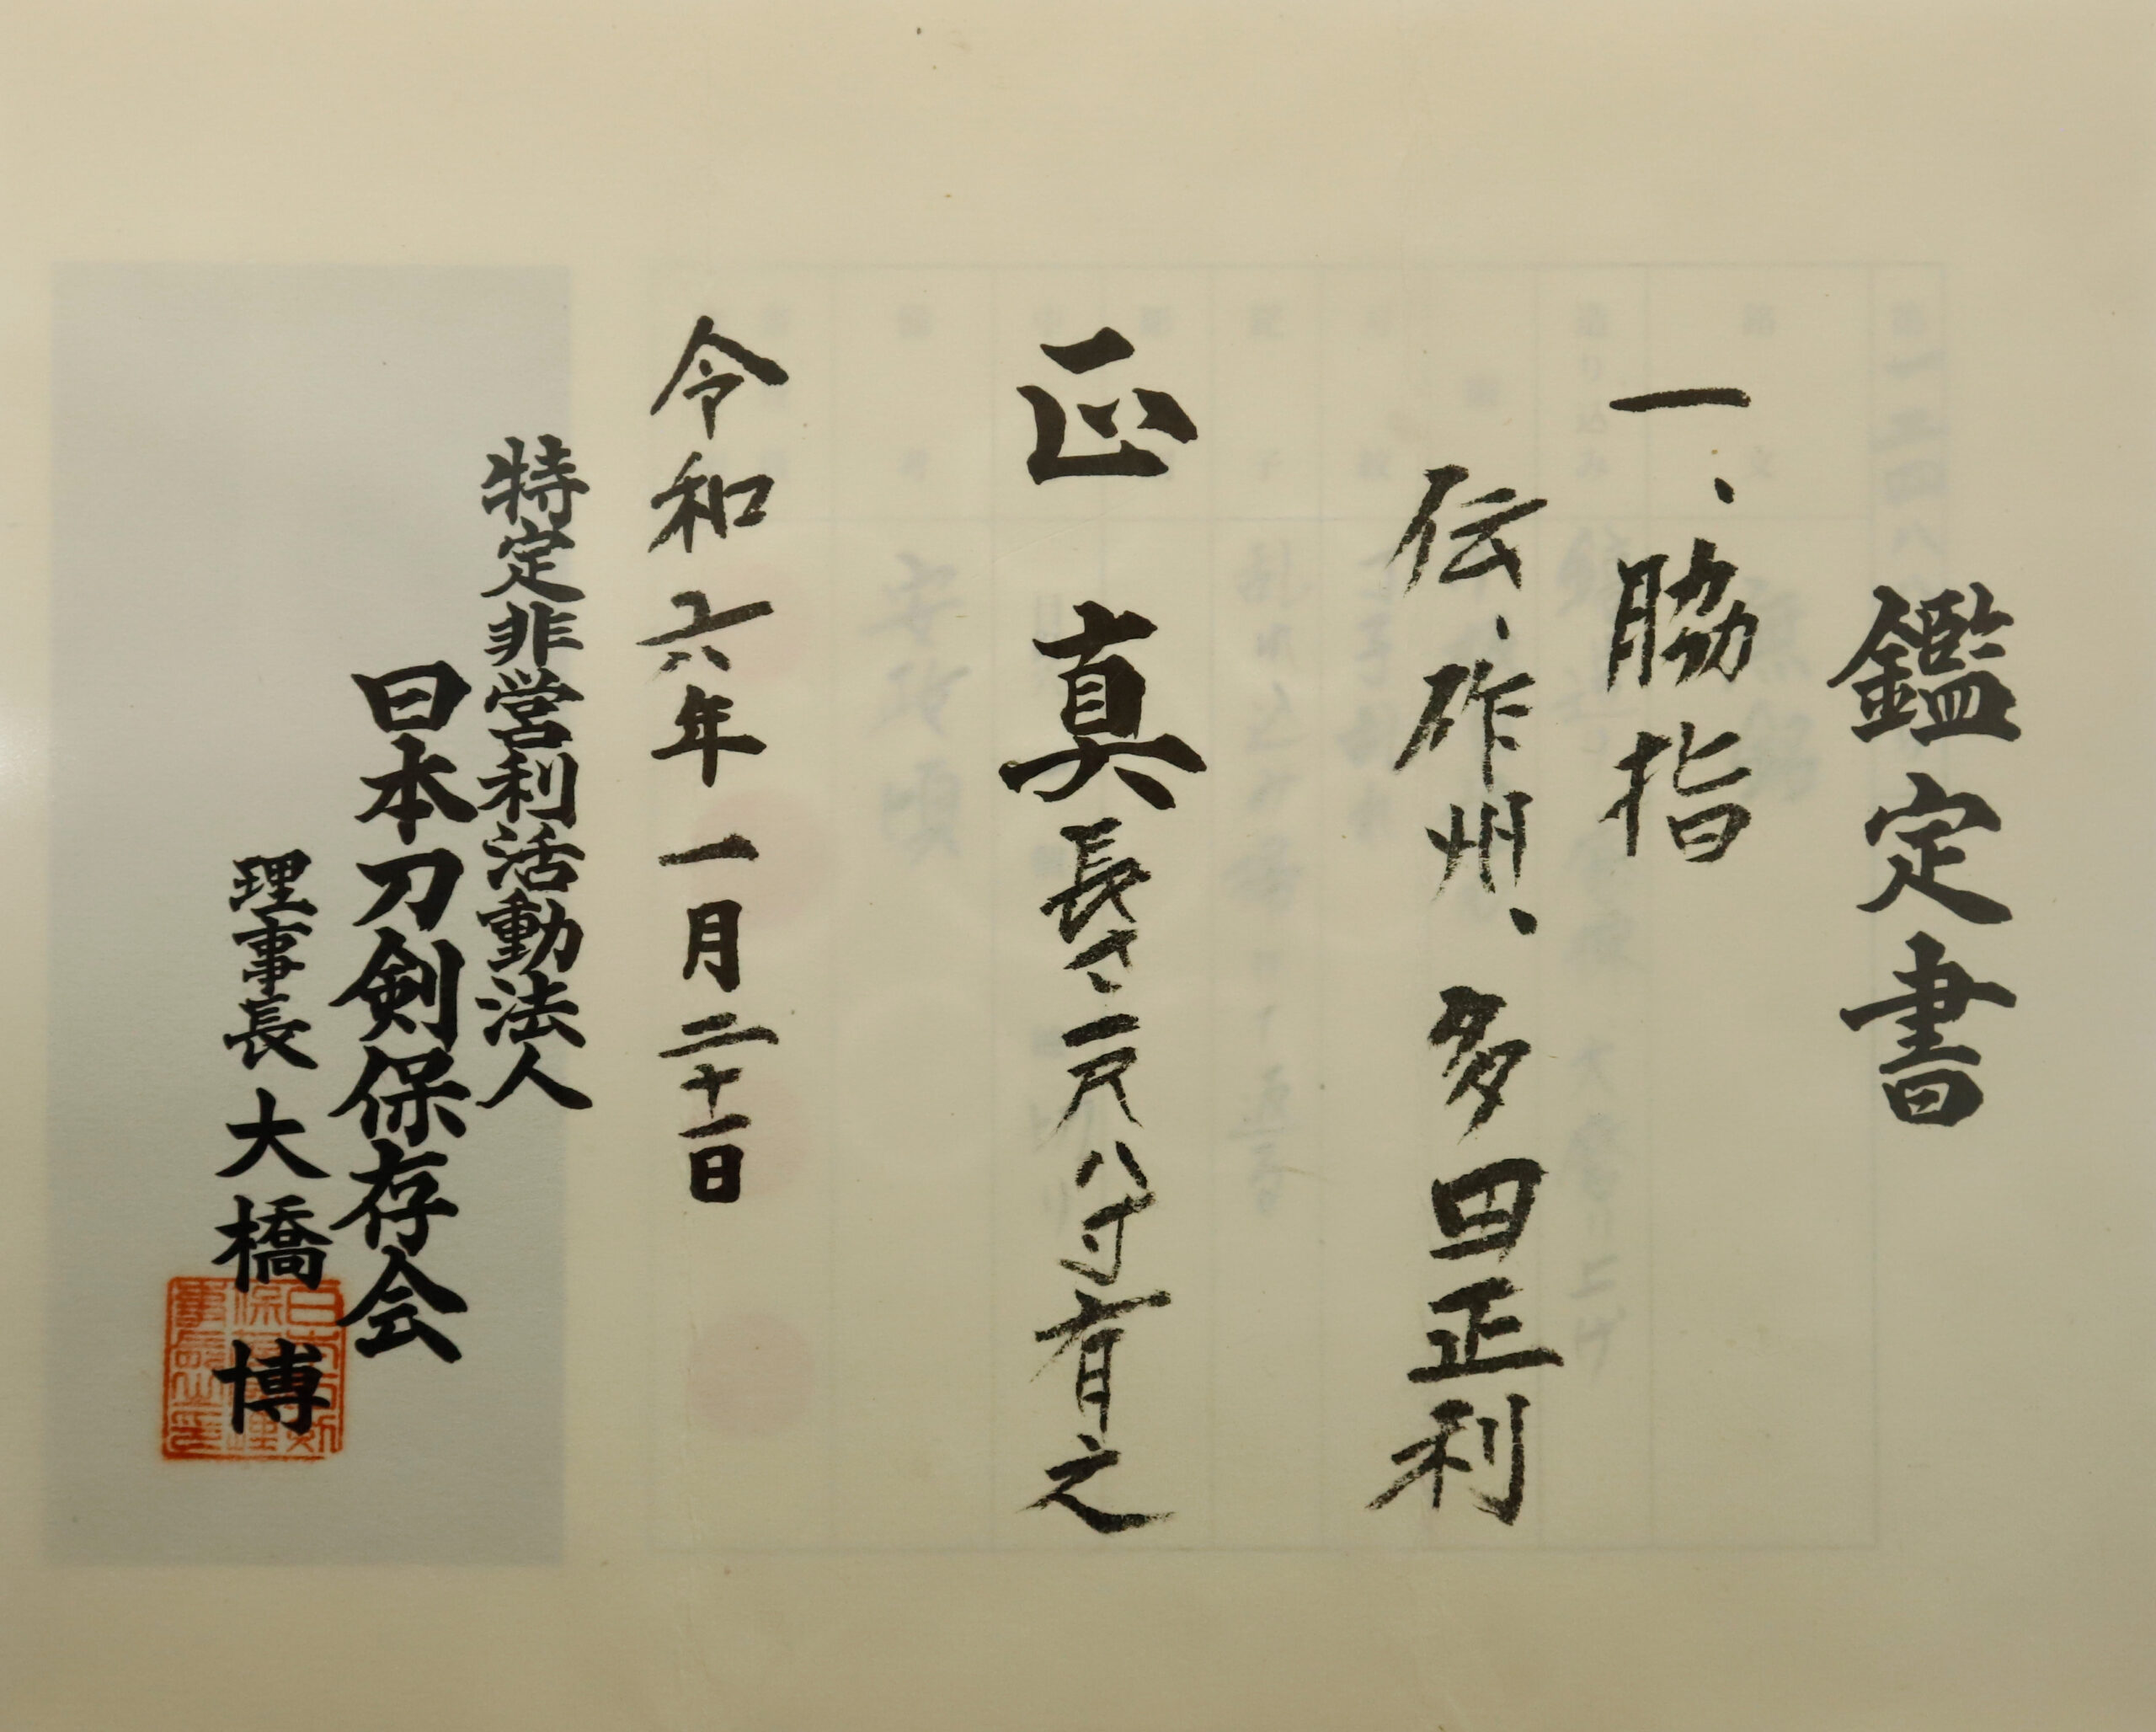 鑑定書
一、脇指
伝、砟州、多田正利
正真
長さ一尺八寸有之
令和六年一月二十一日
特定非営利活動法人
日本刀剣保存会
理事長 大橋 博